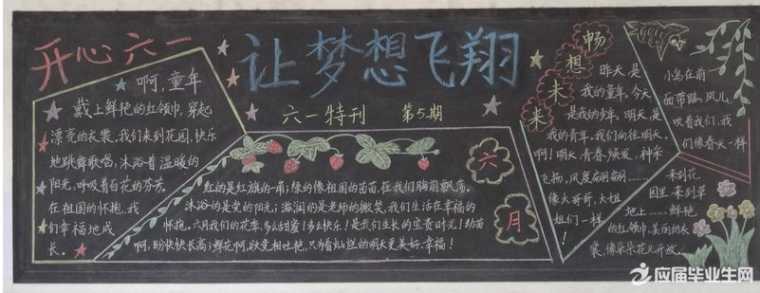 开心六一
啊,童年
戴上鲜艳的红领巾,穿起
漂亮的衣裳,我们来到花园,快乐
地跳舞歌唱,沐浴着温暖的
阳光,呼吸着百花的芬芳
在祖国的怀抱,我
们幸福地成
长。
让梦想飞翔
六一特刊 第5期
六月
红的是红旗的一角;绿的像祖国的苗苗,在我们胸前飘荡。
沐浴的是党的阳光;滋润的是老师的微笑,我们生活在幸福的
怀抱。六月我们的花季,多么甜蜜!多么快乐!是我们生长的宝贵时光!幼苗
啊,盼快快长高;鲜花啊,欲竞相吐艳,只为看灿烂的明天更美好,幸福!
畅想未来
昨天,是
我的童年,今天
是我的少年,明天,是
我的青年,我们向往明天,
啊!明天,青春焕发,神采
飞扬,风度
像大哥哥,大姐
姐们一样!
小鸟在前
面带路,风儿
吹着我们,我
们像春天一样
来到花
园里,来到草
地上……鲜艳
的红领巾,美丽的衣
裳,像朵朵花儿开放。
应届毕业生网